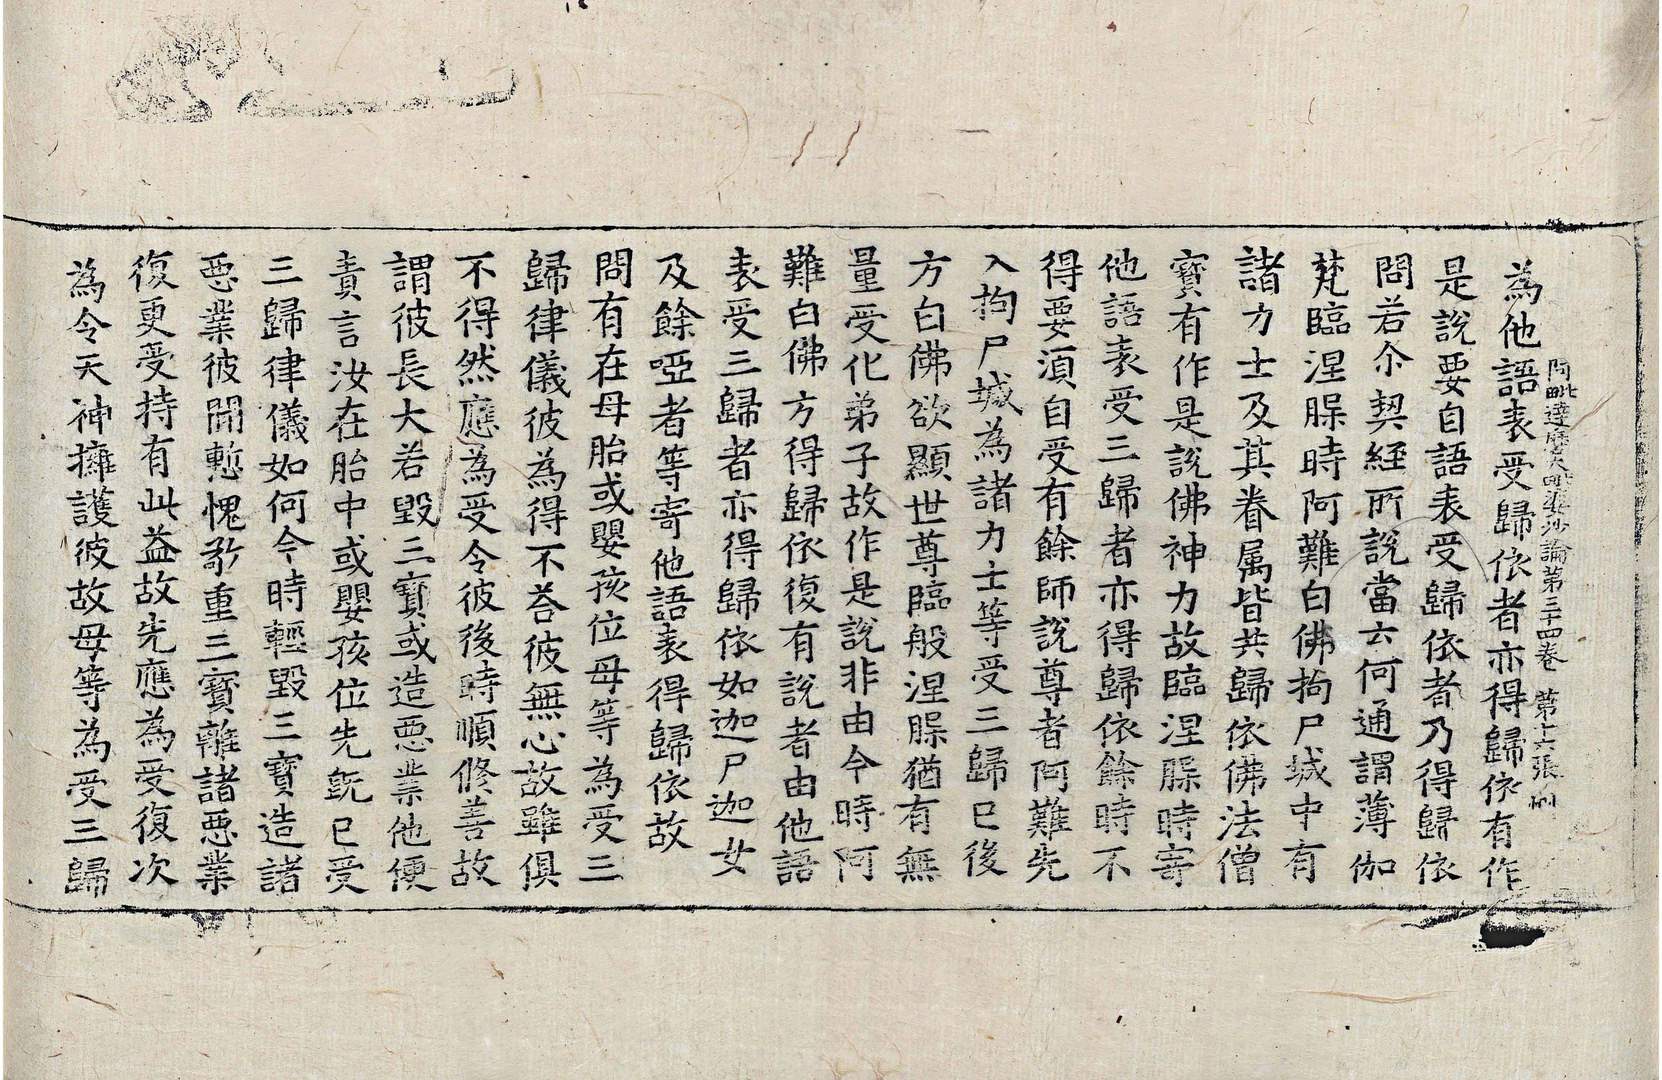 阿毗達磨大毗婆沙論第三十四卷 第十六張 惻
為他語表受歸依者亦得歸依有作
是說要自語表受歸依者乃得歸依
問若尒契經所說當云何通謂薄伽
梵臨涅槃時阿難白佛拘尸城中有
諸力士及其眷属皆共歸依佛法僧
寶有作是說佛神力故臨涅槃時寄
他語表受三歸者亦得歸依餘時不
得要湏自受有餘師說尊者阿難先
入拘尸城為諸力士等受三歸已後
方白佛欲顯世尊臨般涅槃猶有無
量受化弟子故作是說非由今時阿
難白佛方得歸依復有說者由他語
表受三歸者亦得歸依如迦尸迦女
及餘啞者等寄他語表得歸依故
問有在母胎或嬰孩位母等為受三
歸律儀彼為得不荅彼無心故雖俱
不得然應為受令彼後時順修善故
謂彼長大若毀三寶或造惡業他便
責言汝在胎中或嬰孩位先旣已受
三歸律儀如何今時輕毀三寶造諸
惡業彼聞慙愧敬重三寶離諸惡業
復更受持有此益故先應為受復次
為令天神擁護彼故母等為受三歸